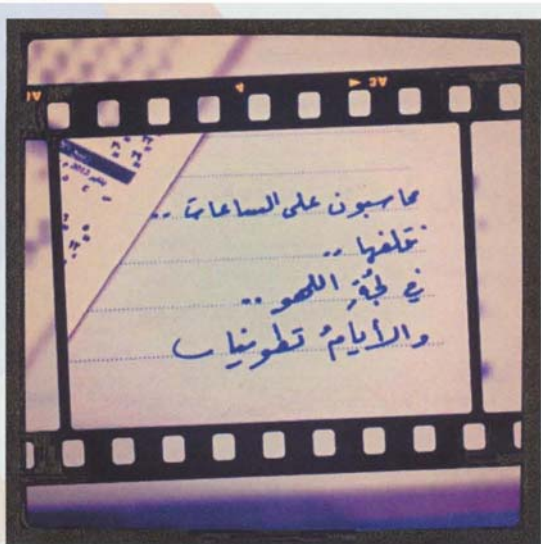 محاسبون على الساعات ..
نتلفها ..
في لجّةِ اللهو ..
والأيامُ تطوينا